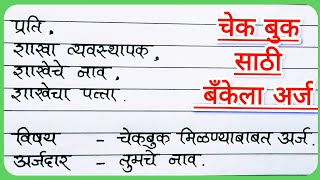 प्रति,
शाखा व्यवस्थापक,
शाखेचे नाव,
शाखेचा पत्ता.
विषय - चेकबुक मिळण्याबाबत अर्ज.
अर्जदार - तुमचे नाव.
चेक बुक
साठी
बँकेला अर्ज